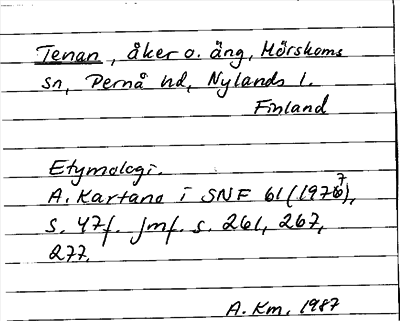 Tenan, åker o. äng, Mörskoms
sn, Pernå hd, Nylands l.
Finland
Etymologi.
A. Kartano i SNF 61 (1977),
s. 47f. jmf. s. 261, 267,
277.
A. Km. 1987